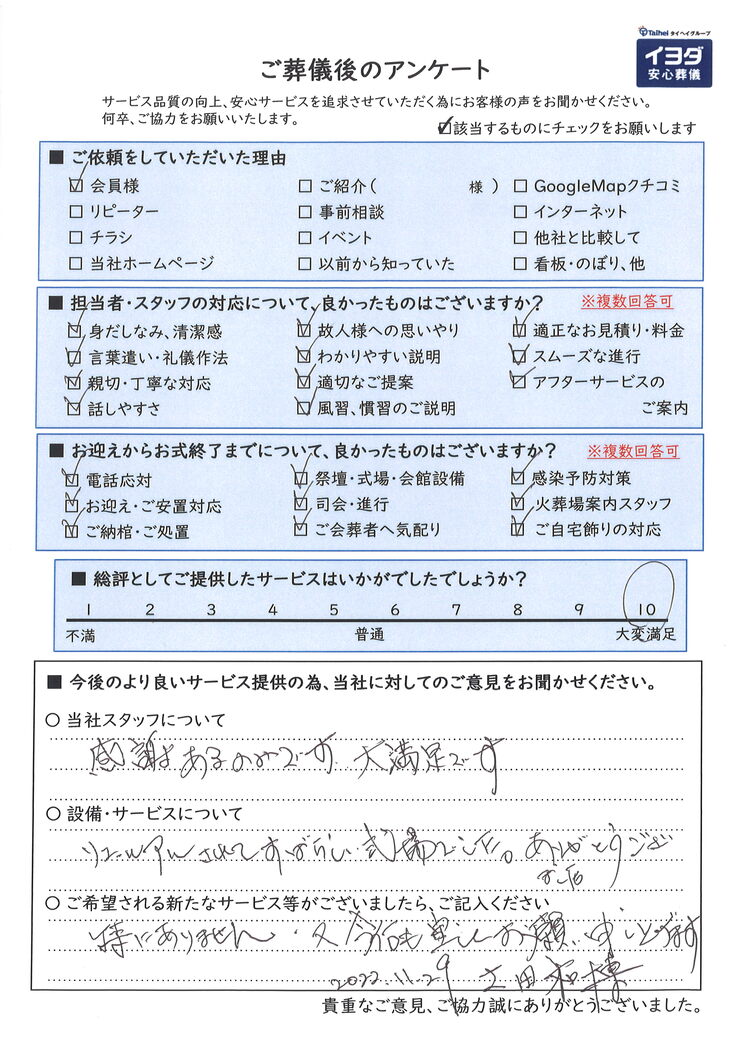 Taihei タイヘイグループ
イヨダ
安心葬儀
ご葬儀後のアンケート
サービス品質の向上、安心サービスを追求させていただく為にお客様の声をお聞かせください。
何卒、ご協力をお願いいたします。
☑該当するものにチェックをお願いします
■ ご依頼をしていただいた理由
☑ 会員様 □ ご紹介( 様 ) □ GoogleMapクチコミ
□ リピーター □ 事前相談 □ インターネット
□ チラシ □ イベント □ 他社と比較して
□ 当社ホームページ □ 以前から知っていた □ 看板・のぼり、他
■ 担当者・スタッフの対応について、良かったものはございますか? ※複数回答可
☑ 身だしなみ、清潔感 ☑ 故人様への思いやり ☑ 適正なお見積り・料金
☑ 言葉遣い・礼儀作法 ☑ わかりやすい説明 ☑ スムーズな進行
☑ 親切・丁寧な対応 ☑ 適切なご提案 ☑ アフターサービスの
☑ 話しやすさ ☑ 風習、慣習のご説明 ご案内
■ お迎えからお式終了までについて、良かったものはございますか? ※複数回答可
☑ 電話応対 ☑ 祭壇・式場・会館設備 ☑ 感染予防対策
☑ お迎え・ご安置対応 ☑ 司会・進行 ☑ 火葬場案内スタッフ
☑ ご納棺・ご処置 ☑ ご会葬者へ気配り ☑ ご自宅飾りの対応
■ 総評としてご提供したサービスはいかがでしたでしょうか?
1 2 3 4 5 6 7 8 9 10
不満 普通 大変満足
■ 今後のより良いサービス提供の為、当社に対してのご意見をお聞かせください。
○ 当社スタッフについて
感謝あるのみです 大満足です
○ 設備・サービスについて
リニューアルされてすばらしい式場でした。ありがとうござい
ました
○ ご希望される新たなサービス等がございましたら、ご記入ください
特にありません・又 お願い申し上げます
2022.11.29
貴重なご意見、ご協力誠にありがとうございました。